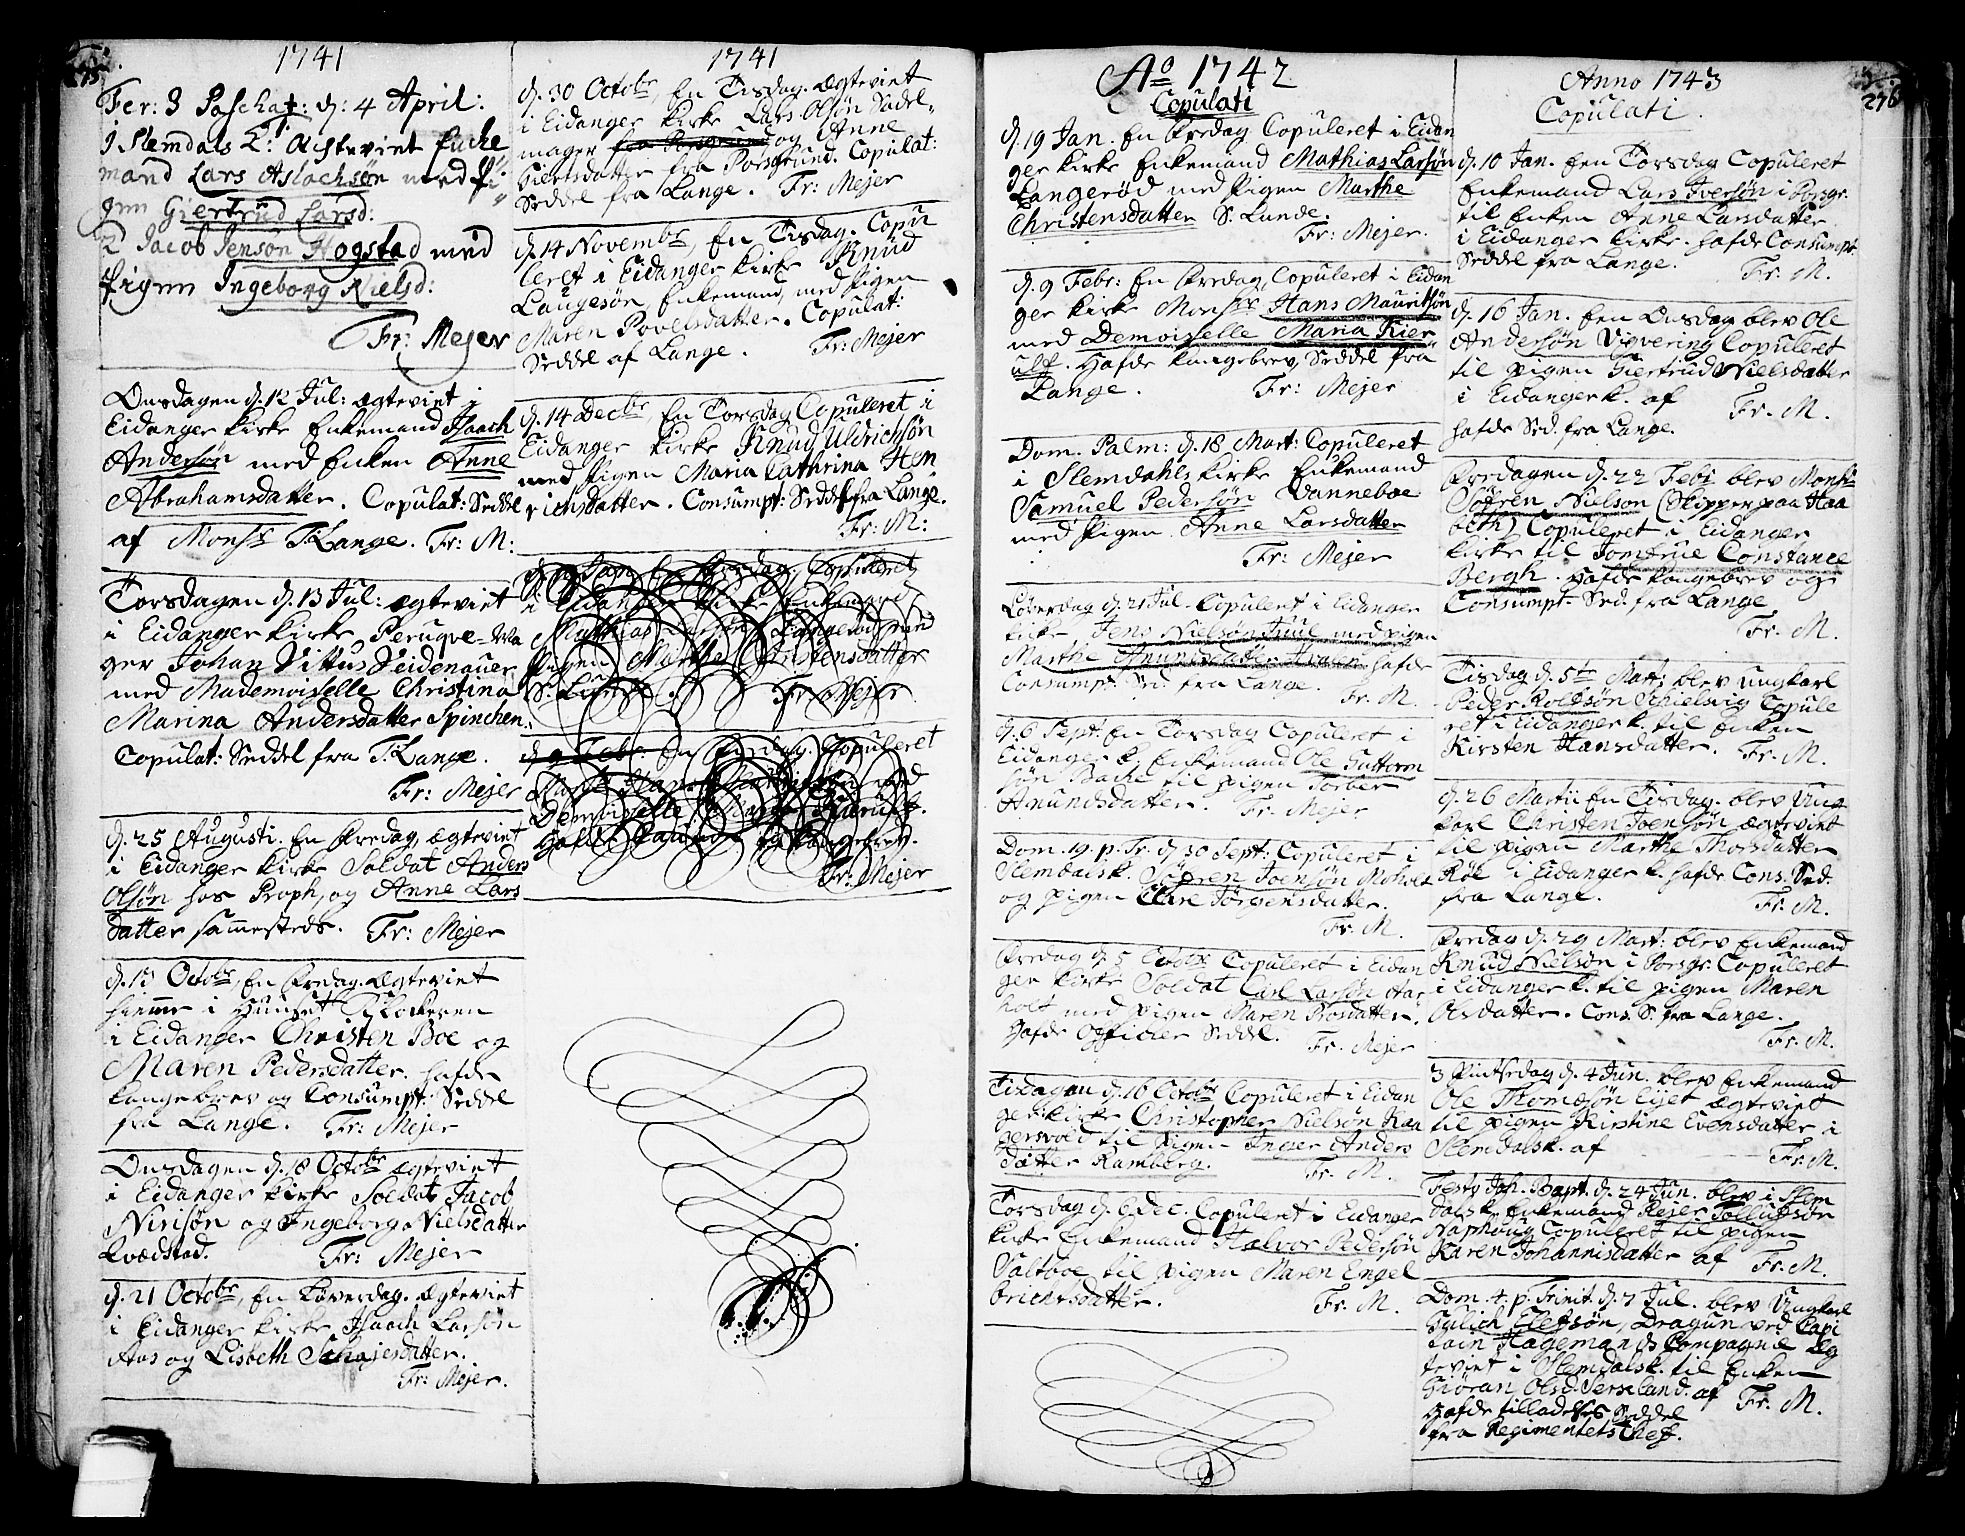 275.
1741
Fer: 3 Paschat: d: 4 April:
I Slemdals K: Ægteviet Enke
mand Lars Aslachsøn med Pi
gen Giertrud Larsd:
2 Jacob Jenson Hogstad med
Pigen Ingeborg Nielsd:
Fr: Mejer
Onsdagen d. 12 Jul: ægteviet i
Eidanger Kirke Enkemand Isaach
Andersøn med Enken Anne
Abrahamsdatter. Copulat: Seddel
af Monsr T. Lange. Fr: M:
Torsdagen d. 13 Jul: ægteviet
i Eidanger Kirke Peruqve-Ma
ger Johan Vittus Seidenauer
med Mademoiselle Christina
Marina Andersdatter Spinchen.
Copulat: Seddel fra T. Lange.
Fr: Mejer
d. 25 Augusti. En Fredag, ægteviet
i Eidanger Kirke Soldat Anders
Olsøn hos Proph, og Anne Lars
datter sammesteds. Fr: Mejer
d. 13 Octobr, En Fredag. Ægteviet
hiemme i Huuset Klockeren
i Eidanger Christen Boe og
Maren Pedersdatter. hafde
Kongebrev og Consumpt: Seddel
fra Lange. Fr: Mejer
Onsdagen d. 18 Octobr ægteviet
i Eidanger Kirke Soldat Jacob
Nirisøn og Ingeborg Nielsdatter
Qvædstad. Fr: Mejer
d. 21 Octobr, En Løverdag. Ægteviet
i Eidanger Kirke Isaach Larsøn
Aas og Lisbeth Schajesdatter.
Fr: Mejer.
1741
d. 30 Octobr, En Tisdag. Ægteviet
i Eidanger Kirke Lars Olsøn Sadel-
mager fra Porsgrund og Anne
Giertsdatter fra Porsgrund. Copulat:
Seddel fra Lange. Fr: Mejer
d. 14 Novembr, En Tisdag. Copu
leret i Eidanger Kirke Knud
Laugesøn, Enkemand, med Pigen
Maren Povelsdatter. Copulat:
Seddel af Lange. Fr: Mejer
d. 14 Decbr, En Torsdag Copuleret i
Eidanger Kirke Knud Uldrichsøn
med Pigen Maria Cathrina Hen
richsdatter. Consumpt: Seddel fra Lange.
Fr: M:
d. 19 Jan. En Fredag, Copuleret
i Eidanger Kirke Enkemand
Matthias Larsøn Langerød med
Pigen Marthe Christensdatter
S. Lunde. Fr: Mejer
d. 9 Febr. En Fredag. Copuleret
Monsr Hans Mauritsøn med
Demoiselle Maria Kierulf.
Hafde Kongebrev.
Fr: Mejer
Ao 1742
Copulati
d. 19 Jan. En Fredag Copuleret i Eidan
ger Kirke Enkemand Mathias Larsøn
Langerød med Pigen Marthe
Christensdatter S. Lunde.
Fr: Mejer.
d. 9 Febr: En Fredag, Copuleret i Eidan
ger Kirke Monsr Hans Mauritsøn
med Demoiselle Maria Kier
ulf. Hafde Kongebrev, Seddel fra
Lange. Fr: Mejer
Dom. Palm: d. 18 Mart: Copuleret
i Slemdahls Kirke Enkemand
Samuel Pedersøn Vanneboe
med Pigen Anne Larsdatter
Fr: Mejer
Løverdag d. 21 Jul. Copuleret i Eidanger
Kirke Jens Nielsøn Juul med Pigen
Marthe Anundsdatter hafde
Consumpt. Sed. fra Lange. Fr. M.
d. 6 Sept. En Torsdag Copuleret i
Eidanger K. Enkemand Ole Guttorm
søn Bache til Pigen Torber
Anundsdatter. Fr: Mejer
Dom. 19. p. Tr. d. 30 Sept: Copuleret i
Slemdalsk. Søfren Joensøn Moholt
og Pigen Clare Jørgensdatter.
Fr. M.
Fredag d. 5 Octobr Copuleret i Eidan
ger Kirke Soldat Carl Larsøn Aar
holt med Pigen Maren Prosdatter.
Hafde Officier Seddel. Fr. Mejer
Tisdagen d. 16 Octobr Copuleret i Eidan
ger Kirke Christopher Nielsøn Kaa
gersvold til Pigen Inger Anders
datter Ramberg. Fr. M.
Torsdag d. 6 Dec. Copuleret i Eidanger
Kirke Enkemand Halvor Pedersøn
Saltboe til Pigen Maren Engel
brichtsdatter. Fr. M.
276
Anno 1743
Copulati.
d. 10 Jan. Een Torsdag Copuleret
Enkemand Lars Iversøn i Porsgr.
til Enken Anne Larsdatter
i Eidanger Kirke. hafde Consumpt.
Seddel fra Lange. Fr. M.
d. 16 Jan. Een Onsdag blev Ole
Andersøn Vigvering Copuleret
til Pigen Giertrud Nielsdatter
i Eidanger k. af Fr. M.
hafde Sed. fra Lange.
Fredagen d. 22 Febr blev Monsr
Søfren Nielson (Skipper paa Haa
beth) Copuleret i Eidanger
Kirke til Jomfrue Constance
Bergh. Hafde Kongebrev og
Consumpt. Sed. fra Lange
Fr. M.
Tisdag d. 5te Mart: blev Ungkarl
Peder Rolfsøn Schielsvig Copule
ret i Eidanger k. til Enken
Kirsten Hansdatter. Fr. M.
d. 26 Martii En Tisdag. blev Ung
karl Christen Joensøn ægteviet
til Pigen Marthe Thorsdatter
Røe i Eidanger k. hafde Cons. Sed.
fra Lange. Fr. M.
Fredag d. 29 Mart: blev Enkemand
Knud Nielsøn i Porsgr. Copuleret
i Eidanger k. til Pigen Maren
Olsdatter. Cons. S. fra Lange.
Fr. M.
3 Pintsedag d. 4 Jun. blev Enkemand
Ole Thomæsøn Eijet ægteviet
til Pigen Kirstine Evensdatter i
Slemdalsk. af Fr. M.
Festo Joh. Bapt. d. 24 Jun. blev i Slem
dalsk. Enkemand Rejer Tollufsøn
Naphoug Copuleret til Pigen
Karen Johannisdatter af Fr. M.
Dom. 4. p. Trinit. d. 7 Jul. blev Ungkarl
Gulich Olefsøn, Dragun ved Capi
tain Hagemands Compagnie Æg
teviet i Slemdalsk. til Enken
Giøran Olsd. Serseland. af Fr. M.
Hafde tilladelses Seddel
fra Regimentets Chef.